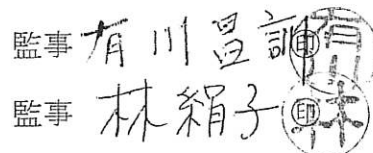 監事 有川昌訓 ㊞ 有川
監事 林絹子 ㊞ 林